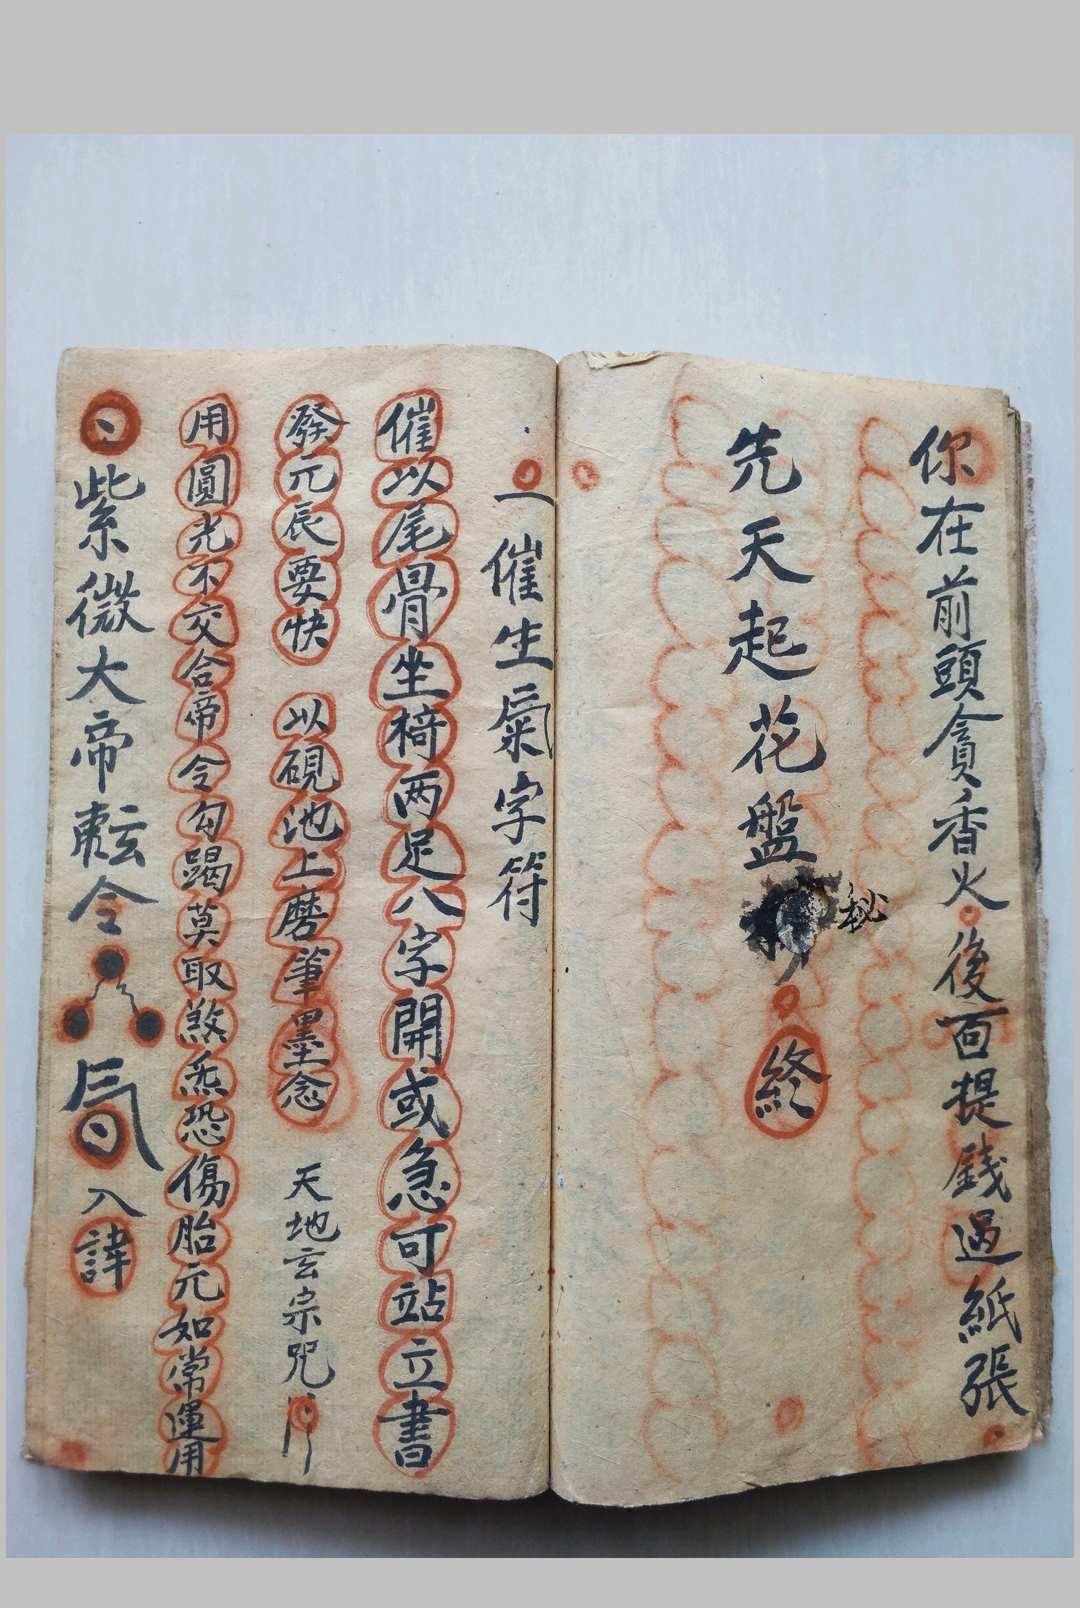 你在前頭貪香火後面提錢過紙張
先天起花盤
秘
終
一催生氣字符
催以尾骨坐椅两足八字開或急可站立書
發元辰要快 以硯池上磨筆墨念 天地玄宗咒
用圓光不交合帝令勾踢莫取煞炁恐傷胎元如常運用
紫微大帝𫐄令 入諱